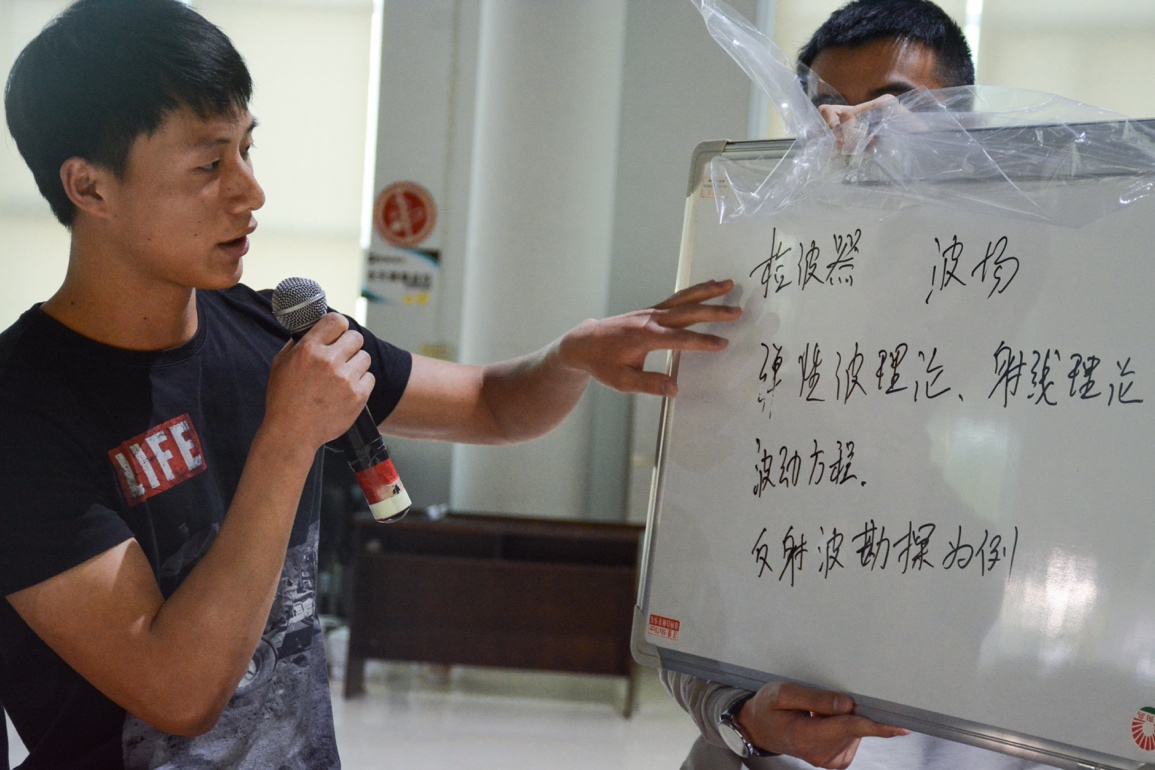 LIFE
检波器 波场
弹性波理论、射线理论
波动方程.
反射波勘探为例